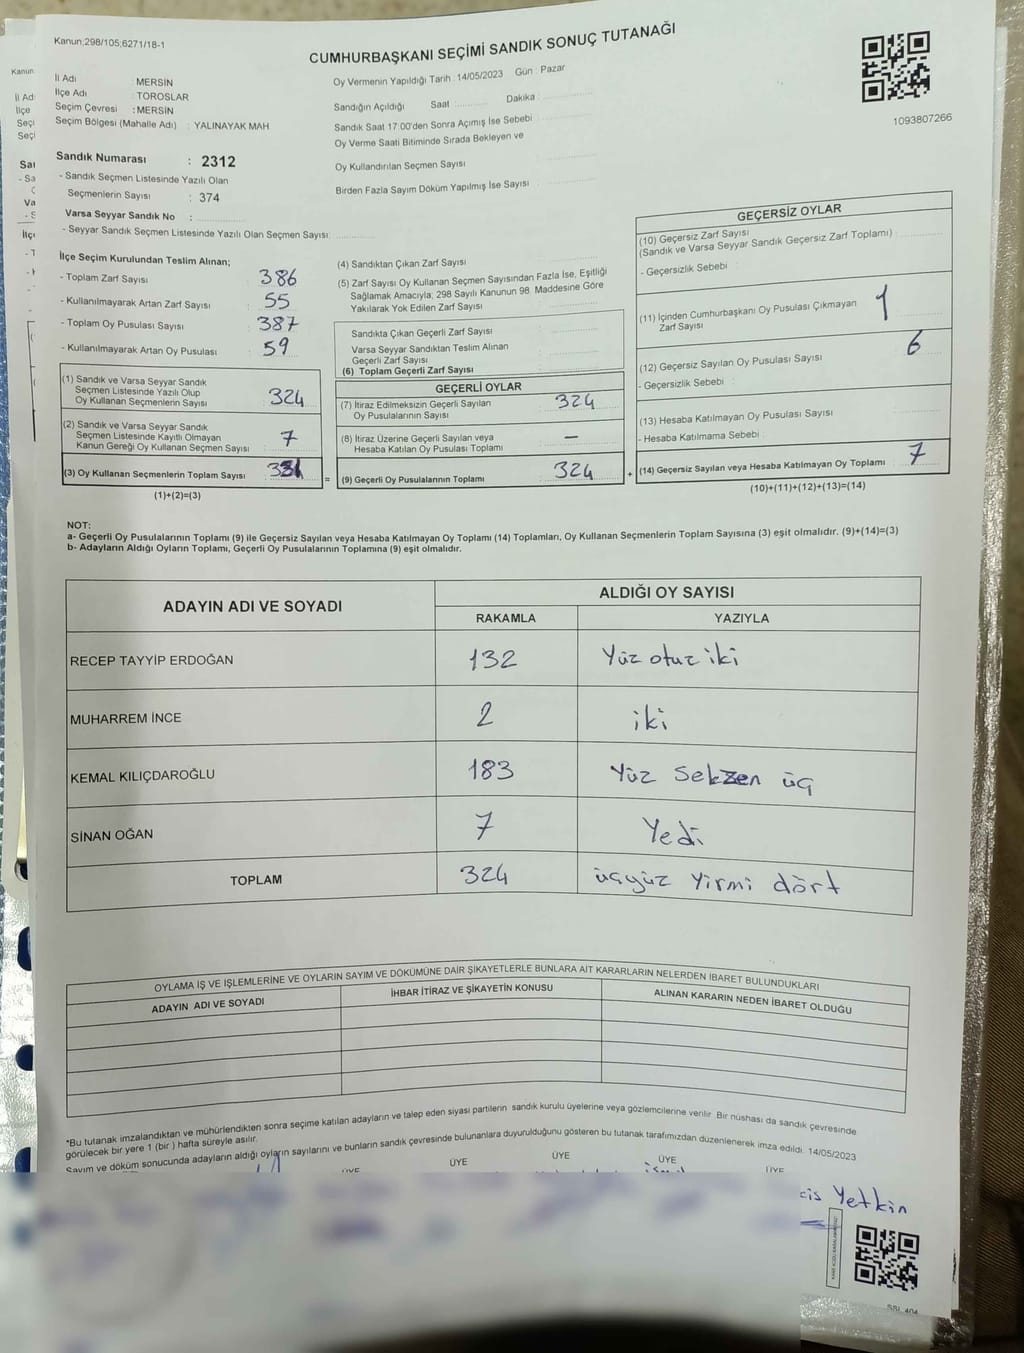 Kanun;298/105;6271/18-1
CUMHURBAŞKANI SEÇİMİ SANDIK SONUÇ TUTANAĞI
1093807266
İl Adı : MERSİN
İlçe Adı : TOROSLAR
Seçim Çevresi : MERSİN
Seçim Bölgesi (Mahalle Adı) : YALINAYAK MAH
Sandık Numarası : 2312
- Sandık Seçmen Listesinde Yazılı Olan
Seçmenlerin Sayısı : 374
Varsa Seyyar Sandık No :
- Seyyar Sandık Seçmen Listesinde Yazılı Olan Seçmen Sayısı:
Oy Vermenin Yapıldığı Tarih : 14/05/2023 Gün : Pazar
Sandığın Açıldığı Saat Dakika :
Sandık Saat 17:00'den Sonra Açımış İse Sebebi
Oy Verme Saati Bitiminde Sırada Bekleyen ve
Oy Kullandırılan Seçmen Sayısı
Birden Fazla Sayım Döküm Yapılmış İse Sayısı :
İlçe Seçim Kurulundan Teslim Alınan;
- Toplam Zarf Sayısı : 386
- Kullanılmayarak Artan Zarf Sayısı : 55
- Toplam Oy Pusulası Sayısı : 387
- Kullanılmayarak Artan Oy Pusulası : 59
(1) Sandık ve Varsa Seyyar Sandık
Seçmen Listesinde Yazılı Olup
Oy Kullanan Seçmenlerin Sayısı 324
(2) Sandık ve Varsa Seyyar Sandık
Seçmen Listesinde Kayıtlı Olmayan
Kanun Gereği Oy Kullanan Seçmen Sayısı 7
(3) Oy Kullanan Seçmenlerin Toplam Sayısı 331
(1)+(2)=(3)
(4) Sandıktan Çıkan Zarf Sayısı
(5) Zarf Sayısı Oy Kullanan Seçmen Sayısından Fazla İse, Eşitliği
Sağlamak Amacıyla; 298 Sayılı Kanunun 98. Maddesine Göre
Yakılarak Yok Edilen Zarf Sayısı
Sandıkta Çıkan Geçerli Zarf Sayısı
Varsa Seyyar Sandıktan Teslim Alınan
Geçerli Zarf Sayısı
(6) Toplam Geçerli Zarf Sayısı
GEÇERLİ OYLAR
(7) İtiraz Edilmeksizin Geçerli Sayılan
Oy Pusulalarının Sayısı 324
(8) İtiraz Üzerine Geçerli Sayılan veya
Hesaba Katılan Oy Pusulası Toplamı —
= (9) Geçerli Oy Pusulalarının Toplamı 324
GEÇERSİZ OYLAR
(10) Geçersiz Zarf Sayısı
(Sandık ve Varsa Seyyar Sandık Geçersiz Zarf Toplamı) :
- Geçersizlik Sebebi :
(11) İçinden Cumhurbaşkanı Oy Pusulası Çıkmayan
Zarf Sayısı 1
(12) Geçersiz Sayılan Oy Pusulası Sayısı 6
- Geçersizlik Sebebi :
(13) Hesaba Katılmayan Oy Pusulası Sayısı
- Hesaba Katılmama Sebebi :
+ (14) Geçersiz Sayılan veya Hesaba Katılmayan Oy Toplamı 7
(10)+(11)+(12)+(13)=(14)
NOT:
a- Geçerli Oy Pusulalarının Toplamı (9) ile Geçersiz Sayılan veya Hesaba Katılmayan Oy Toplamı (14) Toplamları, Oy Kullanan Seçmenlerin Toplam Sayısına (3) eşit olmalıdır. (9)+(14)=(3)
b- Adayların Aldığı Oyların Toplamı, Geçerli Oy Pusulalarının Toplamına (9) eşit olmalıdır.
ADAYIN ADI VE SOYADI ALDIĞI OY SAYISI
RAKAMLA YAZIYLA
RECEP TAYYİP ERDOĞAN 132 Yüz otuz iki
MUHARREM İNCE 2 iki
KEMAL KILIÇDAROĞLU 183 Yüz Sekzen üç
SİNAN OĞAN 7 Yedi
TOPLAM 324 üçyüz Yirmi dört
OYLAMA İŞ VE İŞLEMLERİNE VE OYLARIN SAYIM VE DÖKÜMÜNE DAİR ŞİKAYETLERLE BUNLARA AİT KARARLARIN NELERDEN İBARET BULUNDUKLARI
ADAYIN ADI VE SOYADI İHBAR İTİRAZ VE ŞİKAYETİN KONUSU ALINAN KARARIN NEDEN İBARET OLDUĞU
*Bu tutanak imzalandıktan ve mühürlendikten sonra seçime katılan adayların ve talep eden siyasi partilerin sandık kurulu üyelerine veya gözlemcilerine verilir. Bir nüshası da sandık çevresinde
görülecek bir yere 1 (bir ) hafta süreyle asılır.
Sayım ve döküm sonucunda adayların aldığı oyların sayılarını ve bunların sandık çevresinde bulunanlara duyurulduğunu gösteren bu tutanak tarafımızdan düzenlenerek imza edildi. 14/05/2023
ÜYE ÜYE ÜYE ÜYE ÜYE
Yetkin